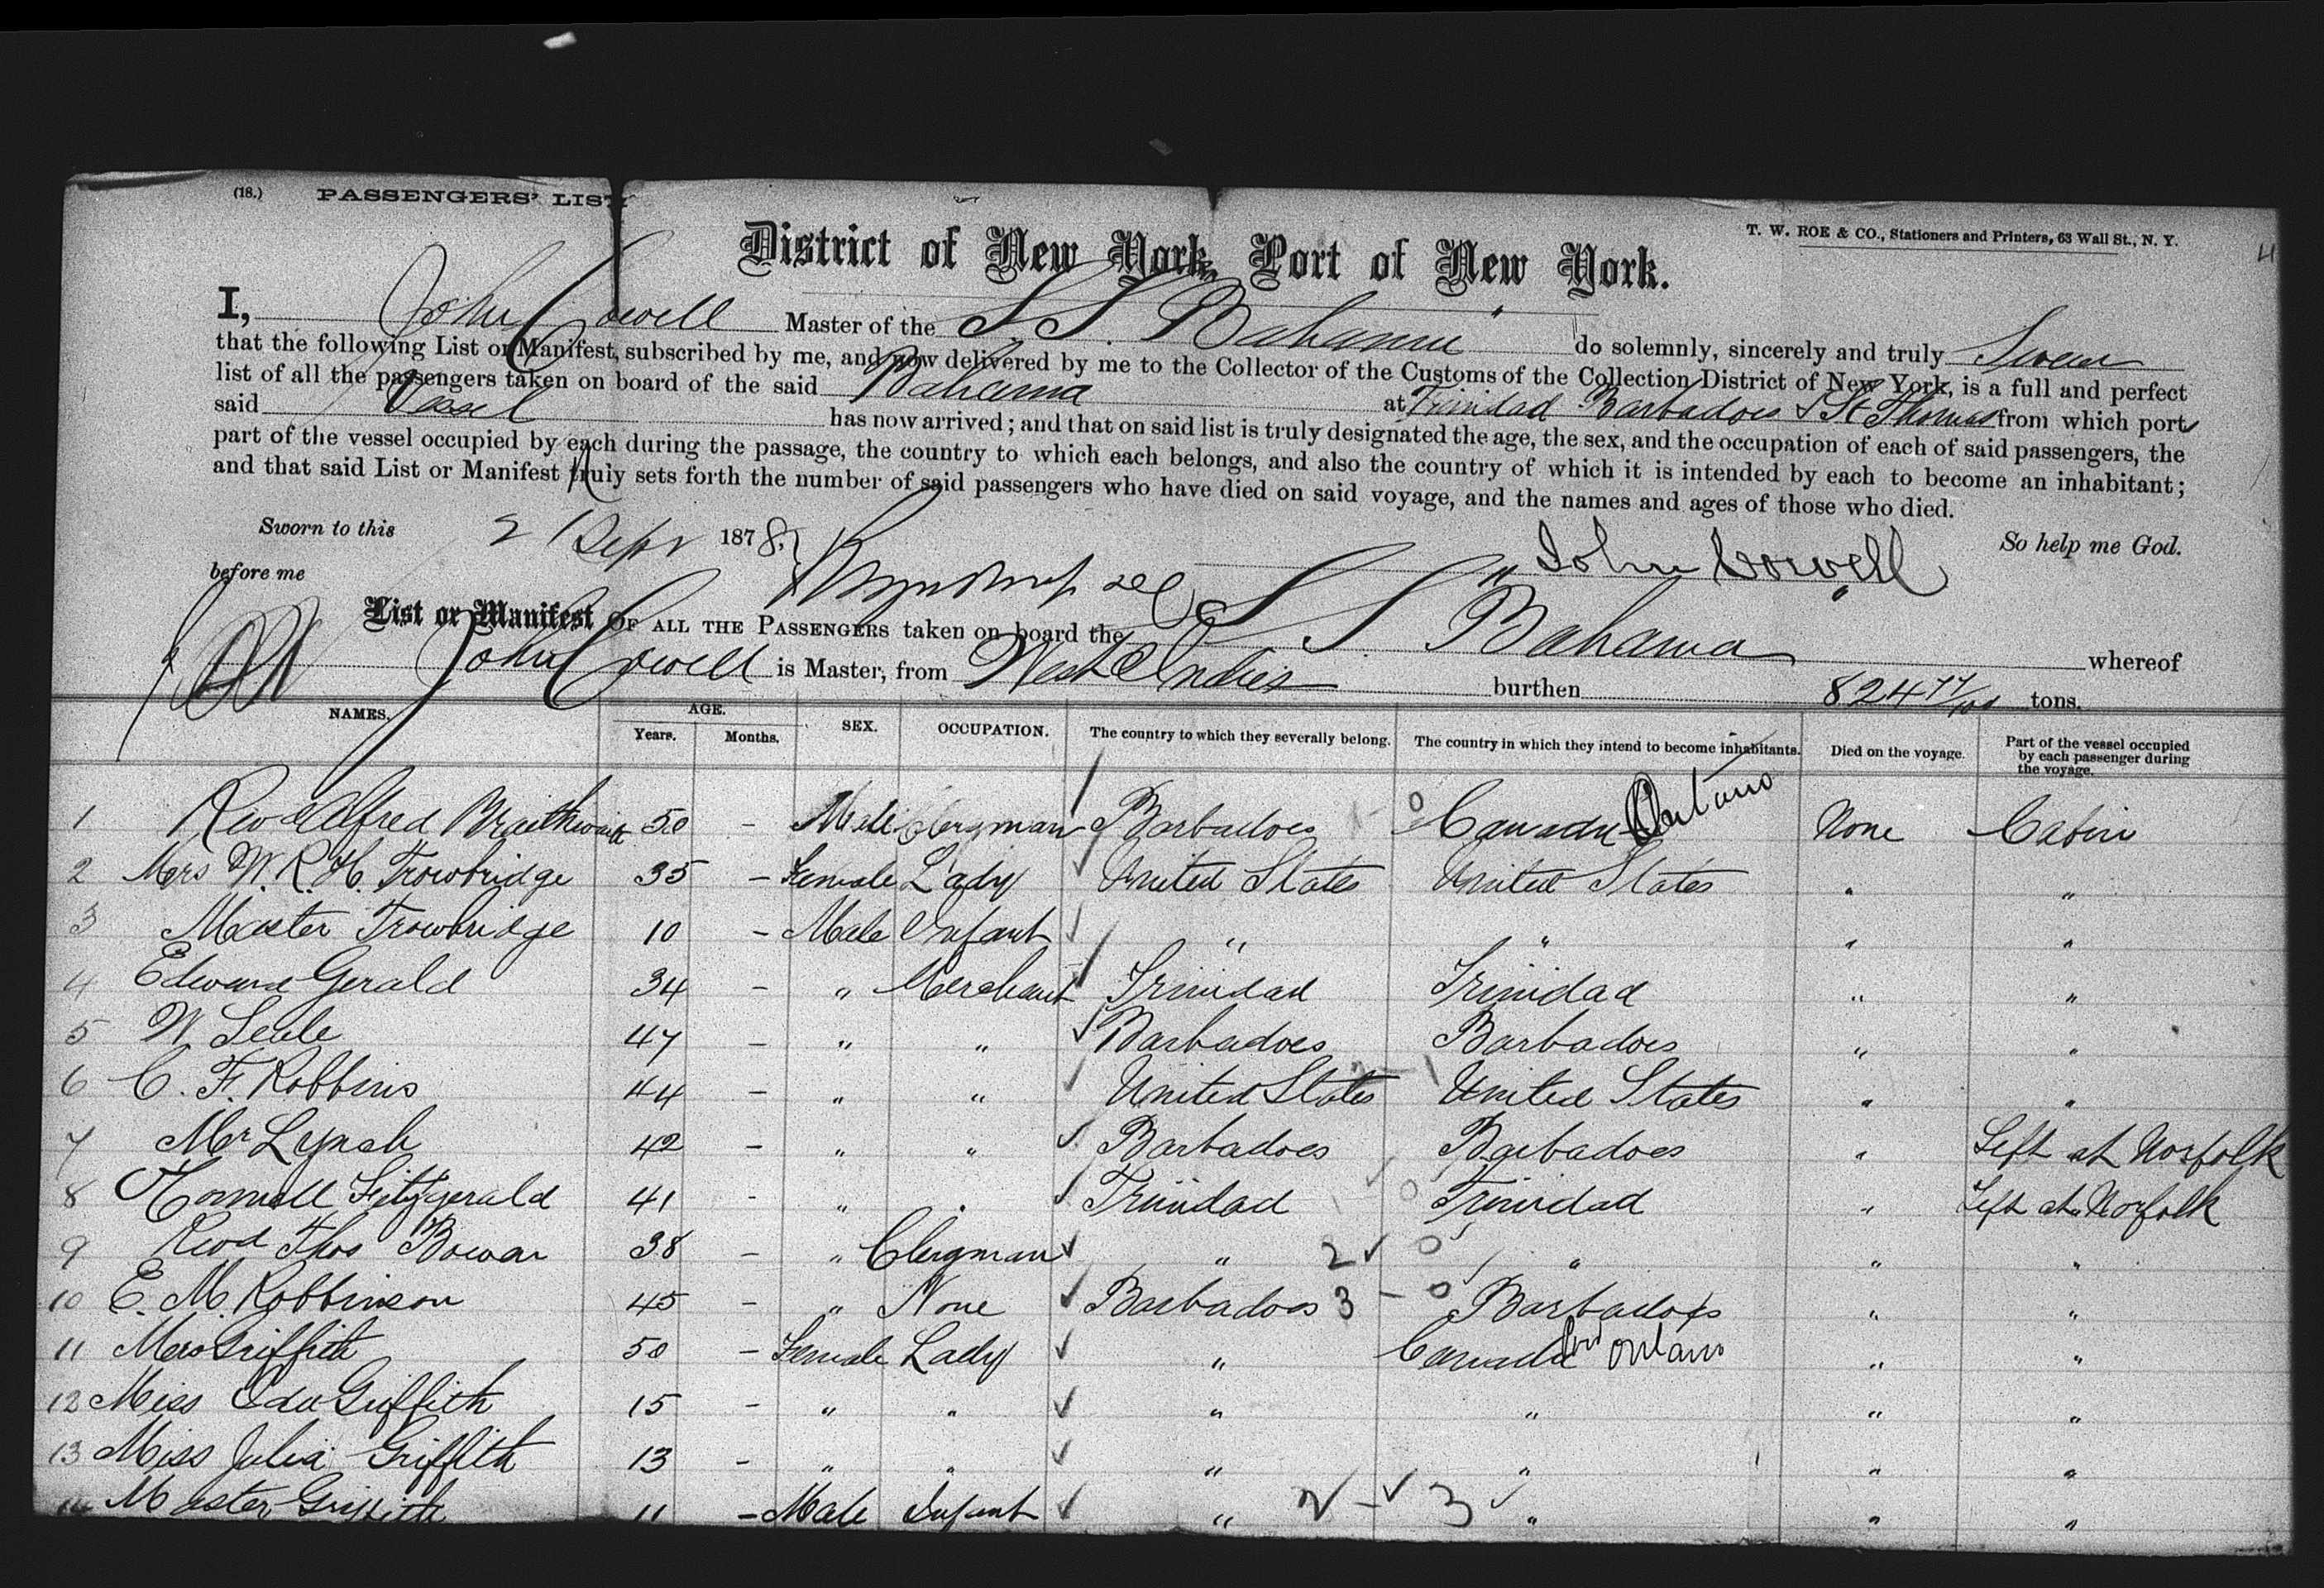 (18.) PASSENGERS' LIST
T. W. ROE & CO., Stationers and Printers, 63 Wall St., N. Y.
4
District of New York, Port of New York.
I, John Cowell Master of the SS. "Bahama" do solemnly, sincerely and truly Swear
that the following List or Manifest, subscribed by me, and now delivered by me to the Collector of the Customs of the Collection District of New York, is a full and perfect
list of all the passengers taken on board of the said Bahama at Trinidad Barbadoes & St Thomas from which ports
said Vessel has now arrived; and that on said list is truly designated the age, the sex, and the occupation of each of said passengers, the
part of the vessel occupied by each during the passage, the country to which each belongs, and also the country of which it is intended by each to become an inhabitant;
and that said List or Manifest truly sets forth the number of said passengers who have died on said voyage, and the names and ages of those who died.
Sworn to this 2 Sept 1878, So help me God.
before me John Cowell
List or Manifest OF ALL THE PASSENGERS taken on board the SS "Bahama" whereof
John Cowell is Master, from West Indies burthen 824 77/100 tons.
NAMES. AGE. Years. Months. SEX. OCCUPATION. The country to which they severally belong. The country in which they intend to become inhabitants. Died on the voyage. Part of the vessel occupied by each passenger during the voyage.
1 Revd Alfred Braithwaite 50 - Male Clergman Barbadoes 0 Canada Ontario None Cabin
2 Mrs W. R. H. Trowbridge 35 - Female Lady United States United States " "
3 Master Trowbridge 10 - Male Infant " " " "
4 Edward Gerald 34 - " Merchant Trinidad Trinidad " "
5 W Seale 47 - " " Barbadoes Barbadoes " "
6 C. F. Robbins 44 - " " United States United States " "
7 Mr Lynch 42 - " " Barbadoes Barbadoes " Left at Norfolk
8 Fitzgerald 41 - " " Trinidad 0 Trinidad " Left at Norfolk
9 Revd Thos Bowar 38 - " Clergman " 2 0 " " "
10 E. M. Robbinson 45 - " None Barbadoes 3 - 0 Barbadoes " "
11 Mrs Griffith 50 - Female Lady " Canada Ontario " "
12 Miss Ada Griffith 15 - " " " " " "
13 Miss Julia Griffith 13 - " " " " " "
14 Master Griffith 11 - Male Infant " 2 - 3 " " "